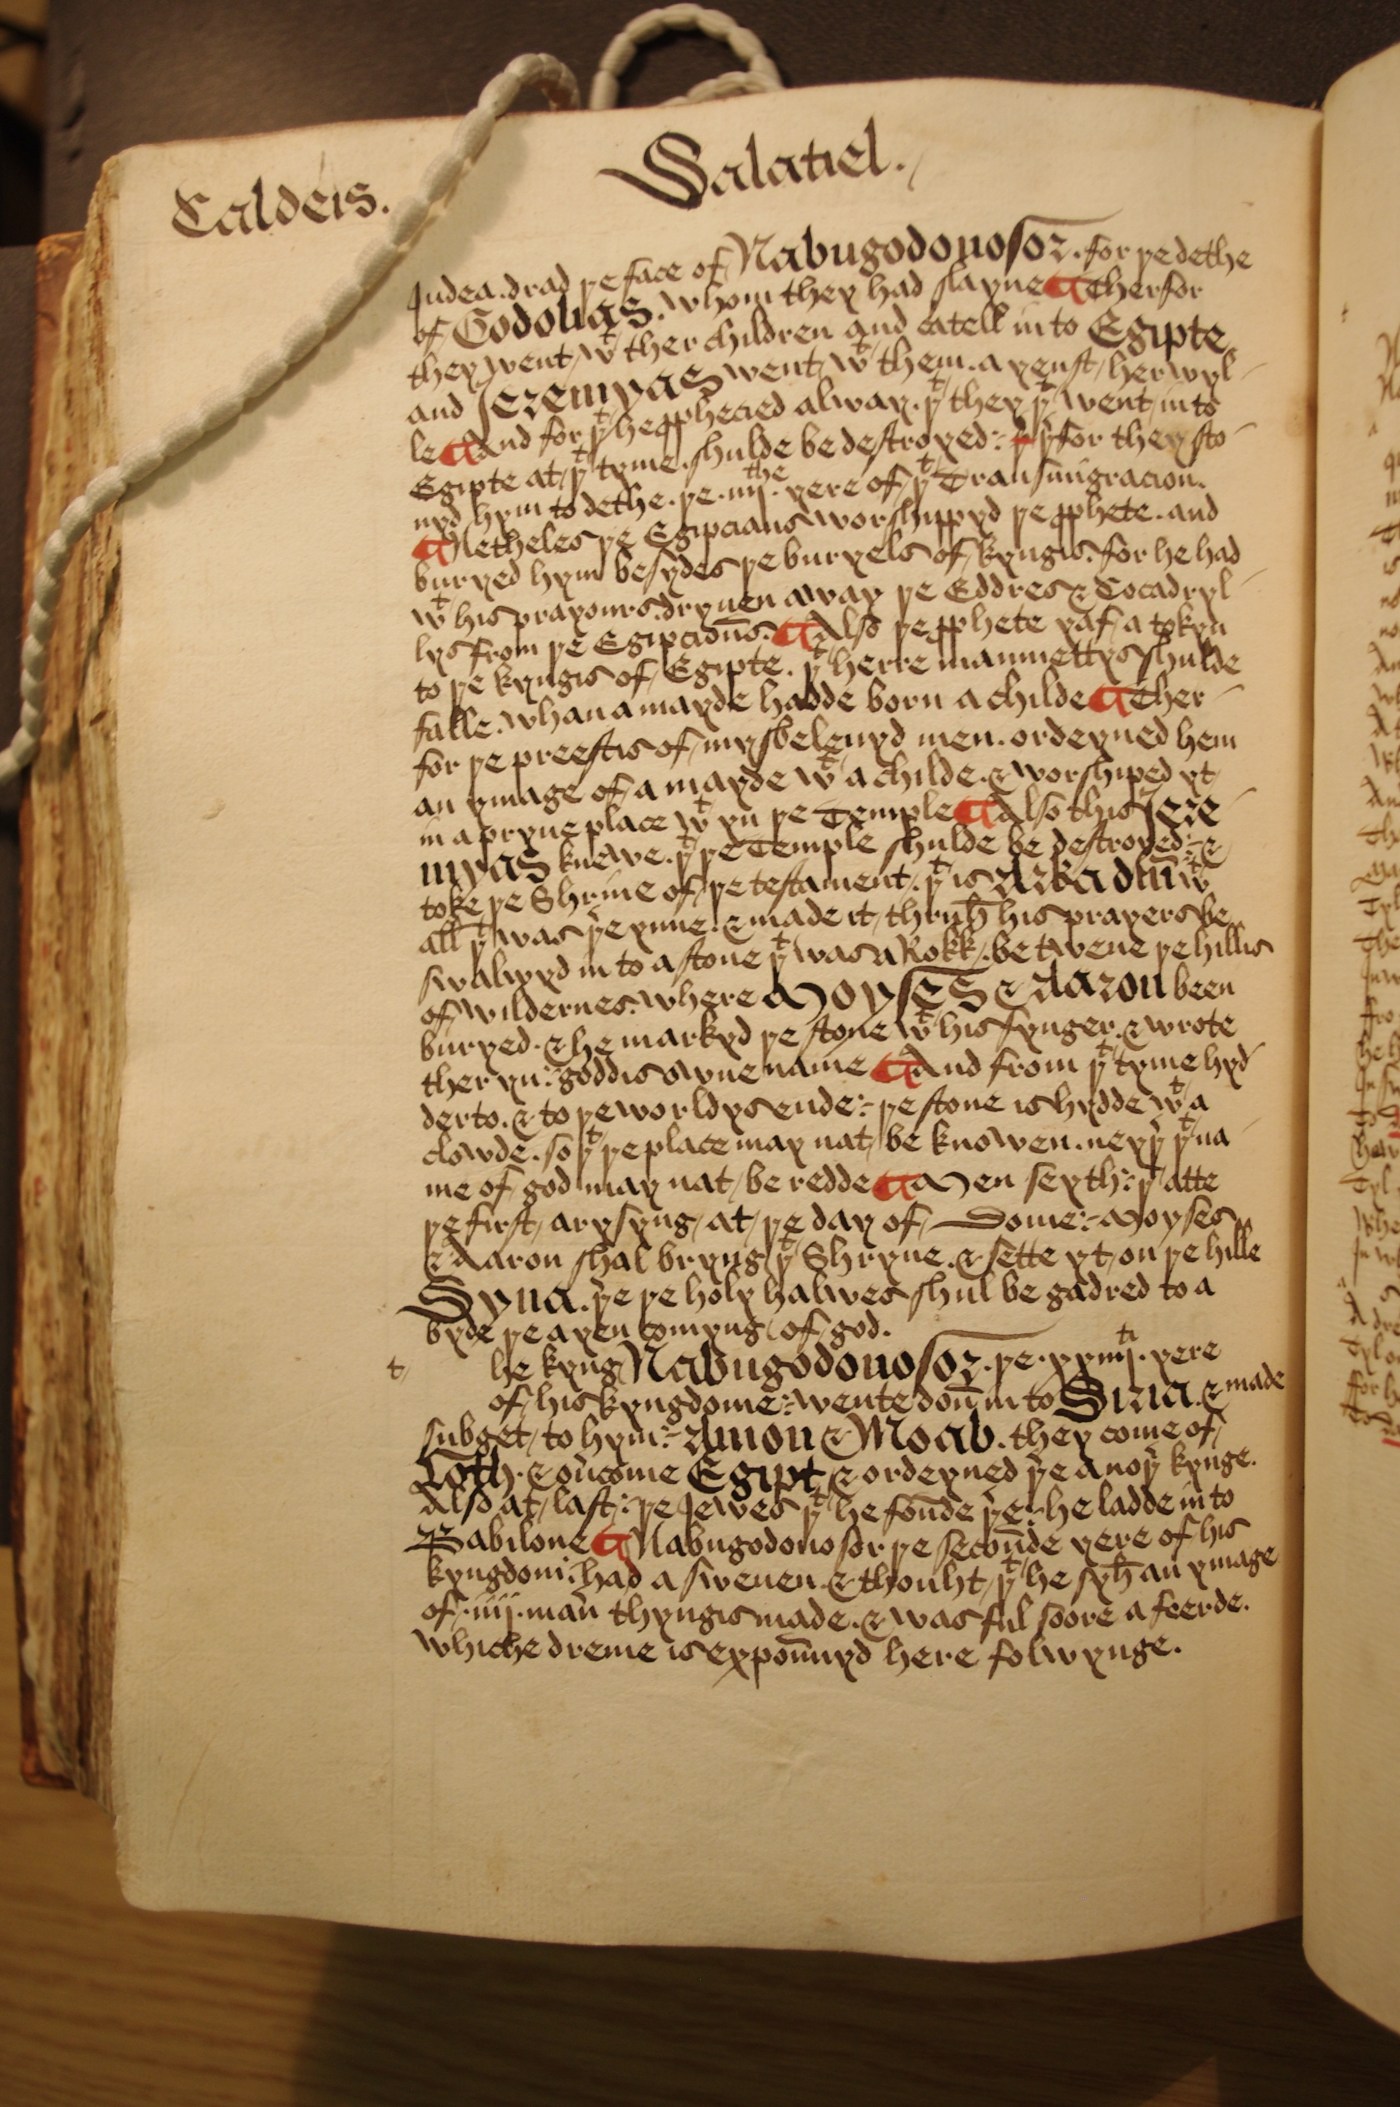 Caldeis.
Salatiel.
Judea. drad þe face of Nabugodonosor. for þe dethe
of Godolias. whom they had slayne ¶ Therfor
they went wᵗ ther children and catell in to Egipte
and Jeremyas went wᵗ them. ayenst her wyl-
le ¶ And for þᵗ he ꝓphecied alway. þᵗ they þᵗ went into
Egipte at þᵗ tyme. shulde be destroyed: þ̉for they sto-
nyd hym to dethe. þe .iiijthe. yere of þᵗ Transmigracion.
¶ Netheles þe Egipcians worshippyd þe ꝓphete. and
buryed hym besydes þe buryels of kyngis. for he had
wᵗ his prayours. dryuen away þe Eddres & Cocadryl-
lys from þe Egipcians. ¶ Also þe ꝓphete yaf a tokyn
to þe kyngis of Egipte. þᵗ herre mammettys shulde
falle. whan a mayde hadde born a childe ¶ Ther-
for þe preestis of mysbeleuyd men. ordeyned hem
an ymage of a mayde wᵗ a childe. & worshiped yt
in a pryue place wᵗ yn þe Temple ¶ Also this Jere-
myas knewe. þᵗ þe Temple shulde be destroyed: &
toke þe Shrine of þe testament. þᵗ is Arka dn̄i wᵗ
all þᵗ was þ̉ynne. & made it thruh his prayers be
swalwyd in to a stone þᵗ was a Rokk. betwene þe hillis
of wildernes. where Moyses & Aaron been
buryed. & he markyd þe stone wᵗ his fynger. & wrote
ther yn: goddis owne name ¶ And from þᵗ tyme hyd-
derto. & to þe worldys ende: þe stone is hydde wᵗ a
clowde. so þᵗ þe place may nat be knowen. neyþ̉ þᵗ na-
me of god may nat be redde ¶ Men seyth: þᵗ atte
þe first arysyng at þe day of Dome: Moyses
& Aaron shal bryng þᵗ Shryne. & sette yt on þe hille
Syna. þ̉e þe holy halwes shul be gadred to a
byde þe ayen comyng of god.
t he kyng Nabugodonosor. þe .xxiijti. yere
of his kyngdome: wente doun in to Siria. & made
subget to hym: Amon & Moab. they come of
Loth. & ou̾come Egipt & ordeyned þ̉e anoþ̉ kynge.
Also at last: þe Jewes þᵗ he founde þ̉e: he ladde in to
Babilone ¶ Nabugodonosor þe secounde yere of his
kyngdom: had a sweuen. & thouht þᵗ he syh an ymage
of .iiij. man̾ thyngis made. & was ful soore a feerde.
whiche dreme is expounnyd here folwynge.